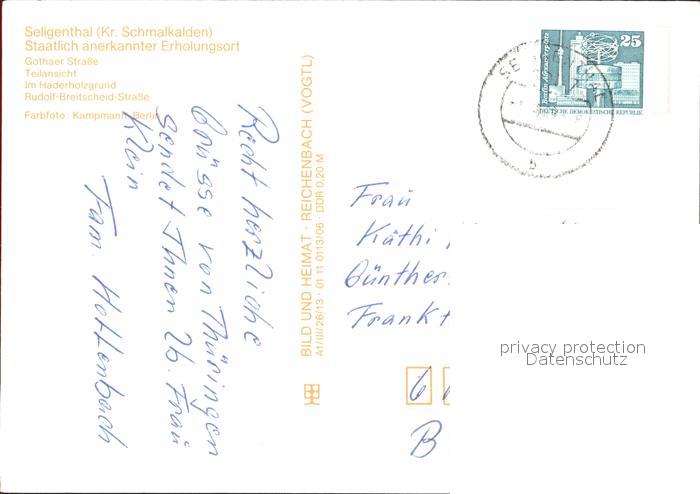 Seligenthal (Kr. Schmalkalden)
Staatlich anerkannter Erholungsort
Gothaer Straße
Teilansicht
Im Haderholzgrund
Rudolf-Breitscheid-Straße
Farbfoto: Kampmann, Berlin
Recht herzliche
Grüsse von Thüringen
sendet Ihnen lb. Frau
Klein
Fam. Hottenbach
BILD UND HEIMAT · REICHENBACH (VOGTL)
A1/III/26/13 · 01 11 0113/06 · DDR 0,20 M
25
Berlin, Alexanderplatz
DEUTSCHE DEMOKRATISCHE REPUBLIK
b
Frau
Käthi
Günther
Frankf
6
B
privacy protection
Datenschutz